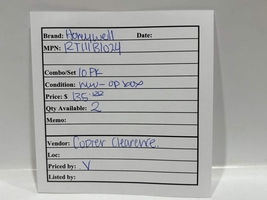 Brand: Honeywell Date:
MPN: RT111B1024
Combo/Set 10 PK
Condition: new - op box
Price: $ 135.00
Qty Available: 2
Memo:
Vendor: Copier Clearence
Loc:
Priced by: V
Listed by: